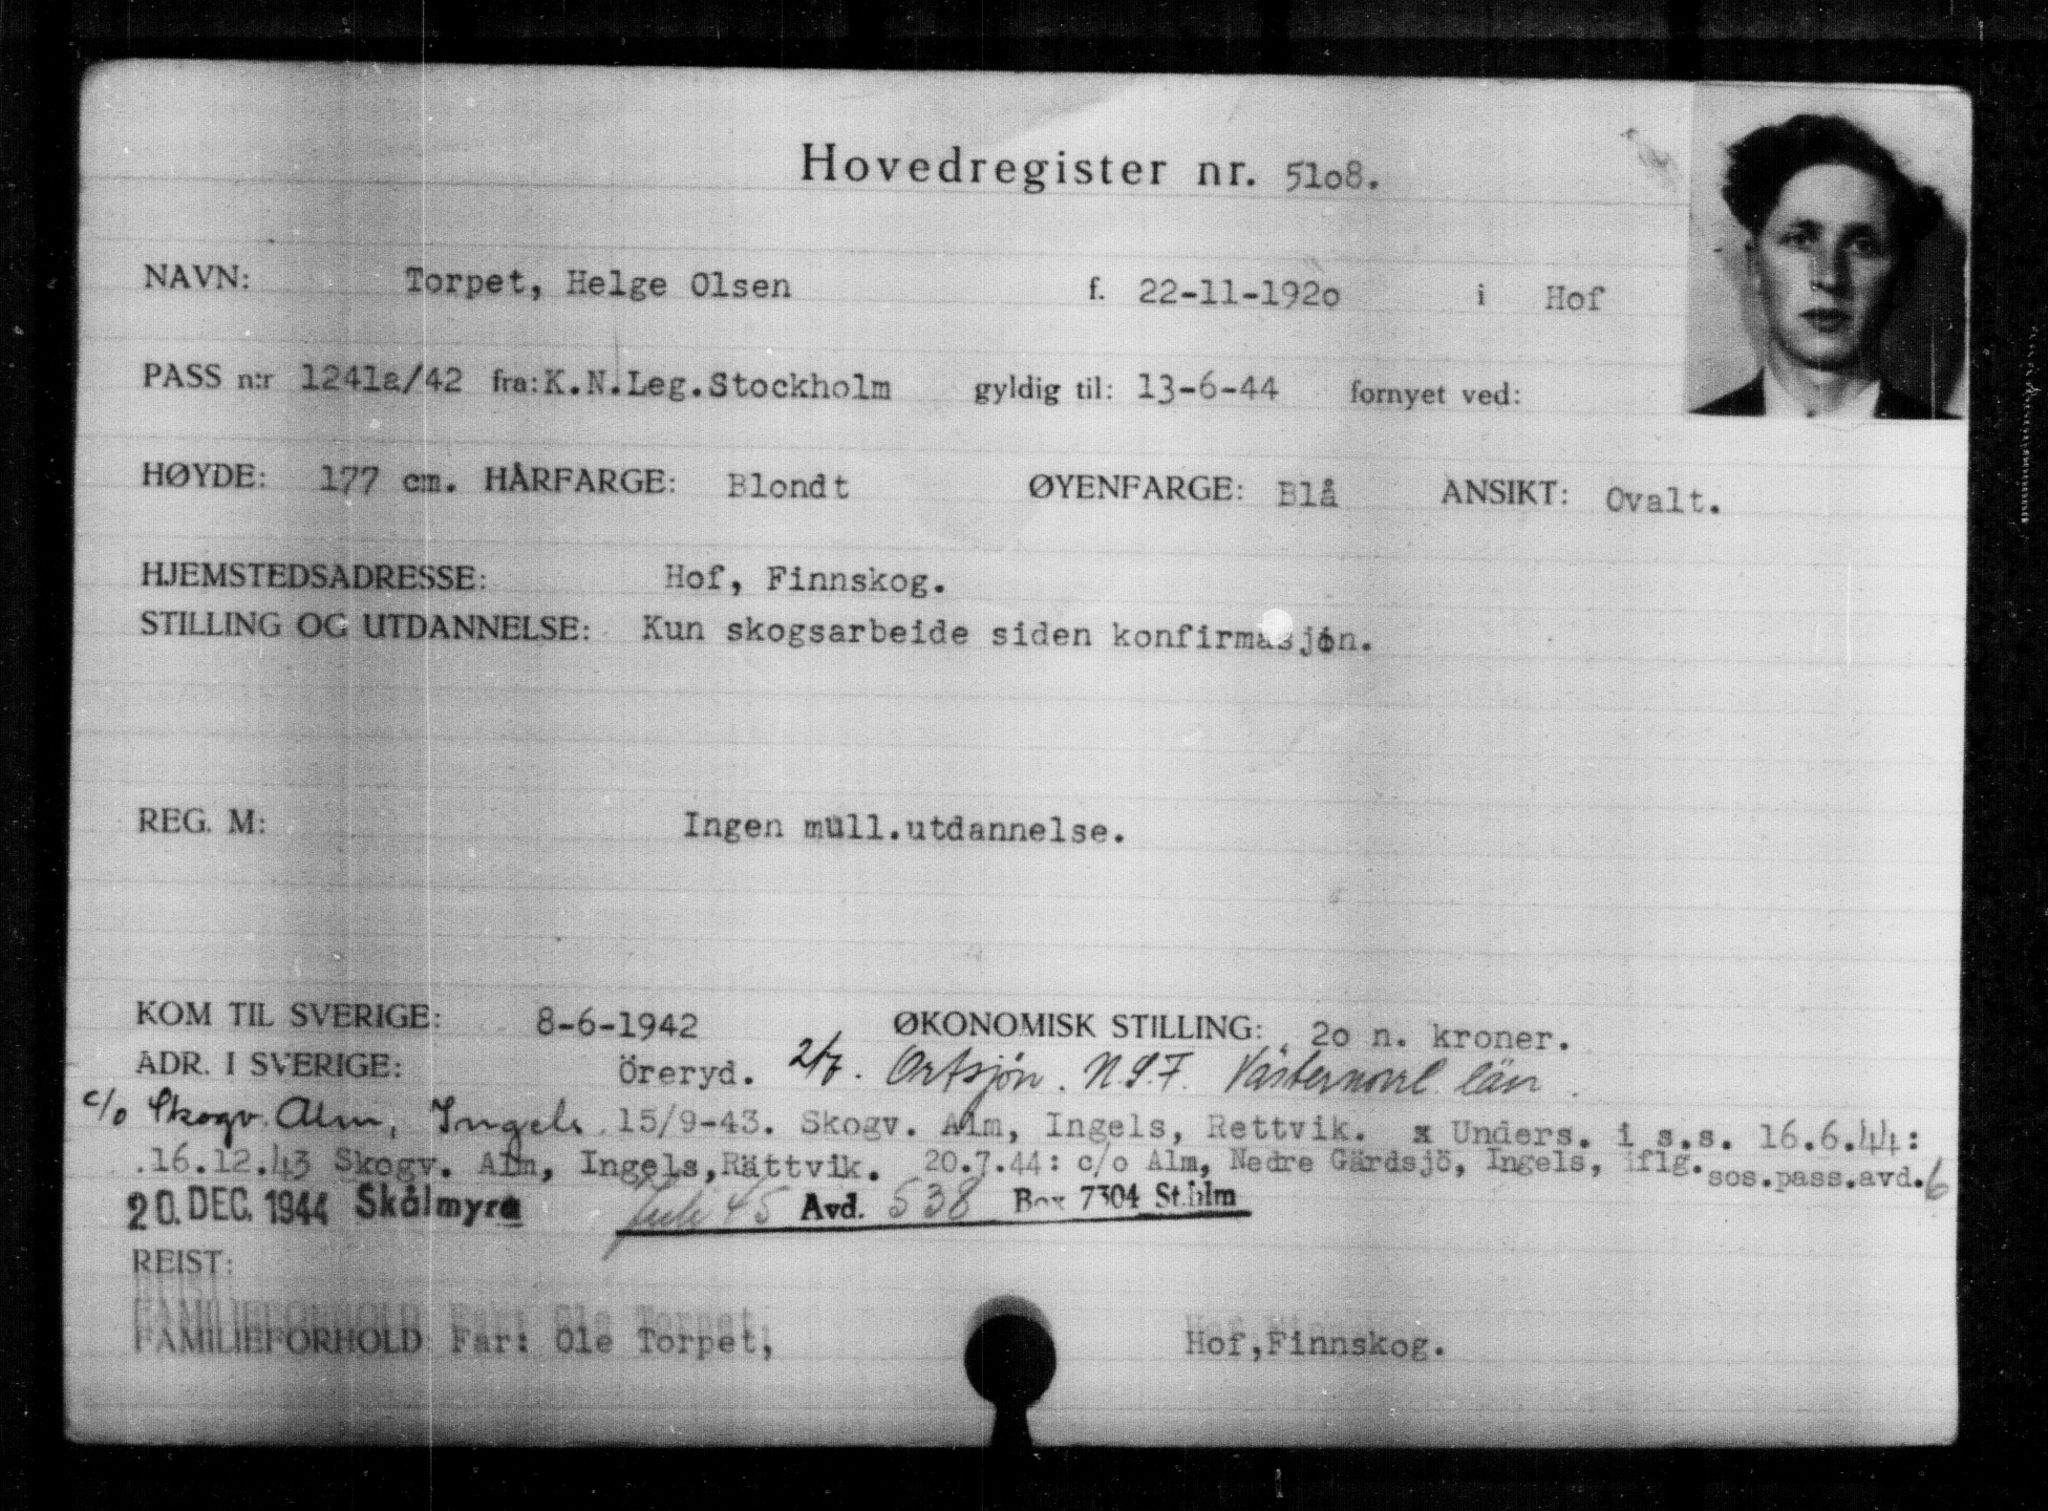 Hovedregister nr. 51o8.
NAVN: Torpet, Helge Olsen f. 22-11-192o i Hof
PASS n:r 1241a/42 fra: K.N.Leg.Stockholm gyldig til: 13-6-44 fornyet ved:
HØYDE: 177 cm. HÅRFARGE: Blondt ØYENFARGE: Blå ANSIKT: Ovalt.
HJEMSTEDSADRESSE: Hof, Finnskog.
STILLING OG UTDANNELSE: Kun skogsarbeide siden konfirmasjon.
REG. M: Ingen mull.utdannelse.
KOM TIL SVERIGE: 8-6-1942 ØKONOMISK STILLING: 2o n. kroner.
ADR. I SVERIGE: Öreryd. 2/7. Ortsjön. N.S.F. Västernorrl. län.
c/o Skogv. Alm, Ingels 15/9-43. Skogv. Alm, Ingels, Rettvik. x Unders. i s.s. 16.6.44:
.16.12.43 Skogv. Alm, Ingels,Rättvik. 20.7.44: c/o Alm, Nedre Gärdsjö, Ingels, iflg. sos.pass.avd. 6
20. DEC. 1944 Skålmyra Juli 45 Avd. 538 Box 7304 St.hlm
REIST:
FAMILIEFORHOLD: Far: Ole Torpet, Hof,Finnskog.